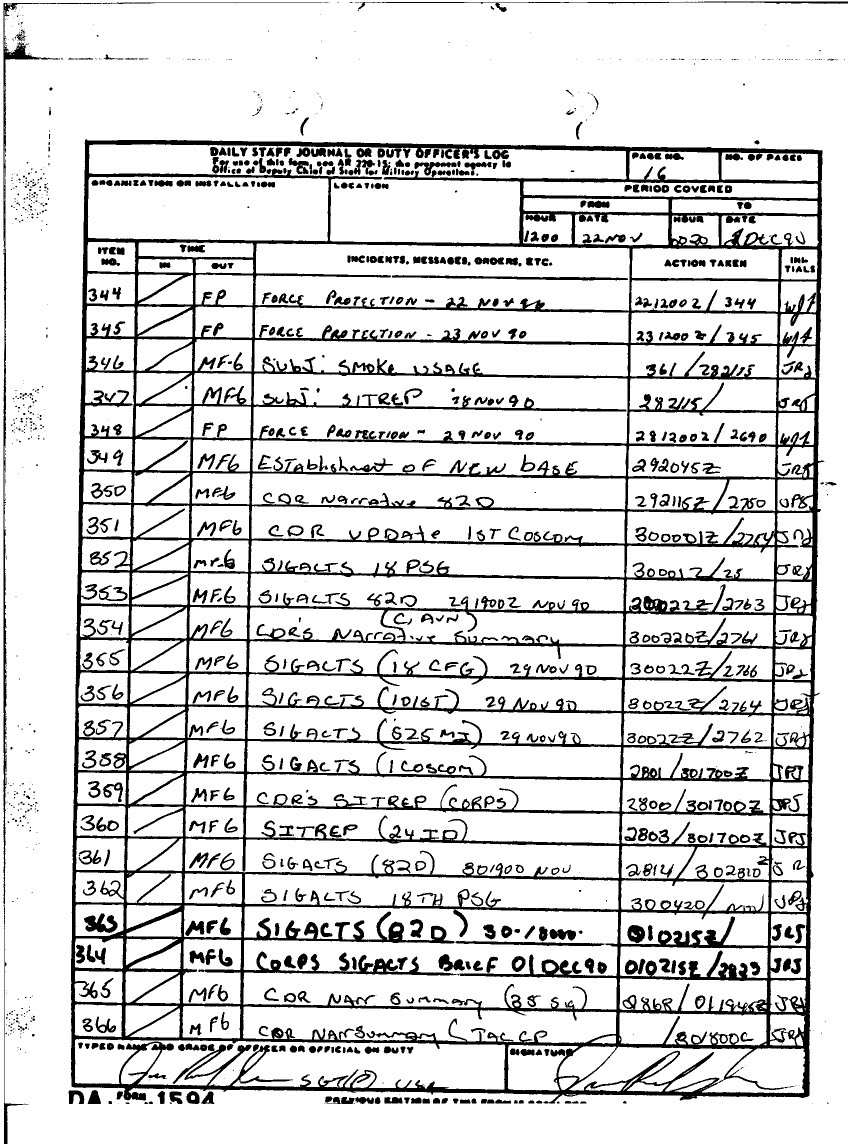 DAILY STAFF JOURNAL OR DUTY OFFICER'S LOG
For use of this form, see AR 220-15; the proponent agency is
Office of Deputy Chief of Staff for Military Operations.
PAGE NO.
16
NO. OF PAGES
ORGANIZATION OR INSTALLATION
LOCATION
PERIOD COVERED
FROM
TO
HOUR DATE HOUR DATE
1200 22 NOV Dec 90
ITEM NO. TIME IN OUT INCIDENTS, MESSAGES, ORDERS, ETC. ACTION TAKEN INITIALS
344 FP FORCE PROTECTION - 22 NOV 90 221200Z / 344
345 FP FORCE PROTECTION - 23 NOV 90 231200Z / 345
346 MF-6 SUBJ: SMOKE USAGE 361 / 282115 JRJ
347 MF6 SUBJ: SITREP 28 NOV 90 282115/ JRJ
348 FP FORCE PROTECTION - 29 NOV 90 281200Z / 2690
349 MF6 EStablishment OF NEW bASE 292045Z JRJ
350 MF6 CDR Narrative 82D 292115Z / 2750 JRJ
351 MF6 CDR UPDAte 1ST COSCOM 300001Z / 2754 JRJ
352 MF-6 SIGACTS 18 PSG 30001Z / 25 JRJ
353 MF-6 SIGACTS 82D 291900Z NOV 90 / 2763 JRJ
354 MF6 CDR'S NARRAtive Summary (C, AVN) 300220Z / 2761 JRJ
355 MF6 SIGACTS (18 CFG) 29 NOV 90 30022Z / 2766 JRJ
356 MF6 SIGACTS (101ST) 29 NOV 90 30022Z / 2764 JRJ
357 MF6 SIGACTS (525 MI) 29 NOV 90 30022Z / 2762 JRJ
358 MF6 SIGACTS (1 COSCOM) 2801 / 301700Z JRJ
359 MF6 CDR'S SITREP (CORPS) 2800 / 301700Z JRJ
360 MF6 SITREP (24 ID) 2803 / 301700Z JRJ
361 MF6 SIGACTS (82D) 301900 NOV 2814 / 302310Z JR
362 MF6 SIGACTS 18TH PSG 300420 / NOV JRJ
363 MF6 SIGACTS (82D) 010215Z / JRJ
364 MF6 CORPS SIGACTS BRIEF 01 DEC 90 010215Z / 2823 JRJ
365 MF6 CDR NARR Summary (35 Sig) 0868 / 011945Z JRJ
366 MF6 CDR NARR Summary (TACCP JRJ
TYPED NAME AND GRADE OF OFFICER OR OFFICIAL ON DUTY
SIGNATURE
DA FORM 1594